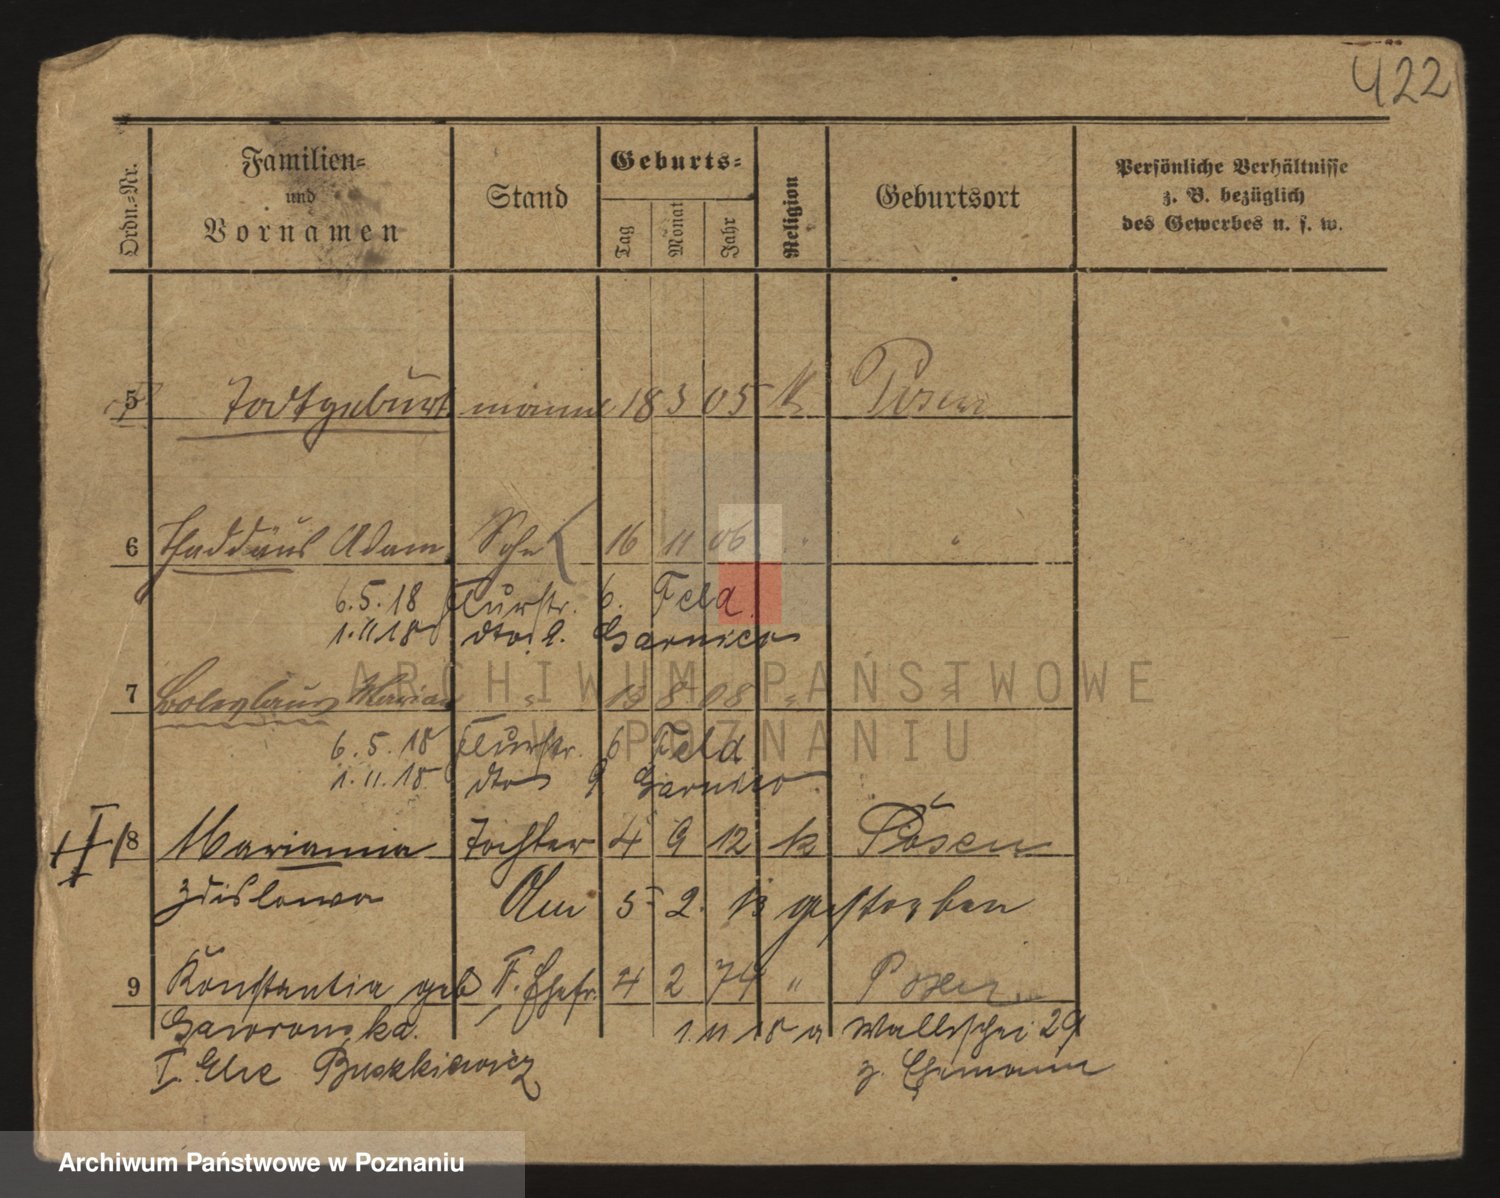 422
Ordn.-Nr.
Familien-
und
Vornamen
Stand
Geburts-
Tag
Monat
Jahr
Religion
Geburtsort
Persönliche Verhältnisse
z. B. bezüglich
des Gewerbes u. s. w.
5 Todtgeburt männl 18 3 05 k Posen
6 Thaddäus Adam Sohn 16 11 06 " "
6.5.18 Flurstr. 6. Feld
1.11.18 dto 9. Garnico
ARCHIWUM PAŃSTWOWE
7 Boleslaus Marian " 13 8 08 " "
W POZNANIU
6.5.18 Flurstr. 6 Feld
1.11.18. dto 9 Garnico
8 Marianna Tochter 4 9 12 k Posen
Zdislawa Am 5. 2. 13 gestorben
9 Konstantia geb II. Ehefr. 4 2 74 " Posen
Gaworonska. 1.11.18 a Wallischei 29
I. Ehe Buszkiewicz z. Ehemann
Archiwum Państwowe w Poznaniu